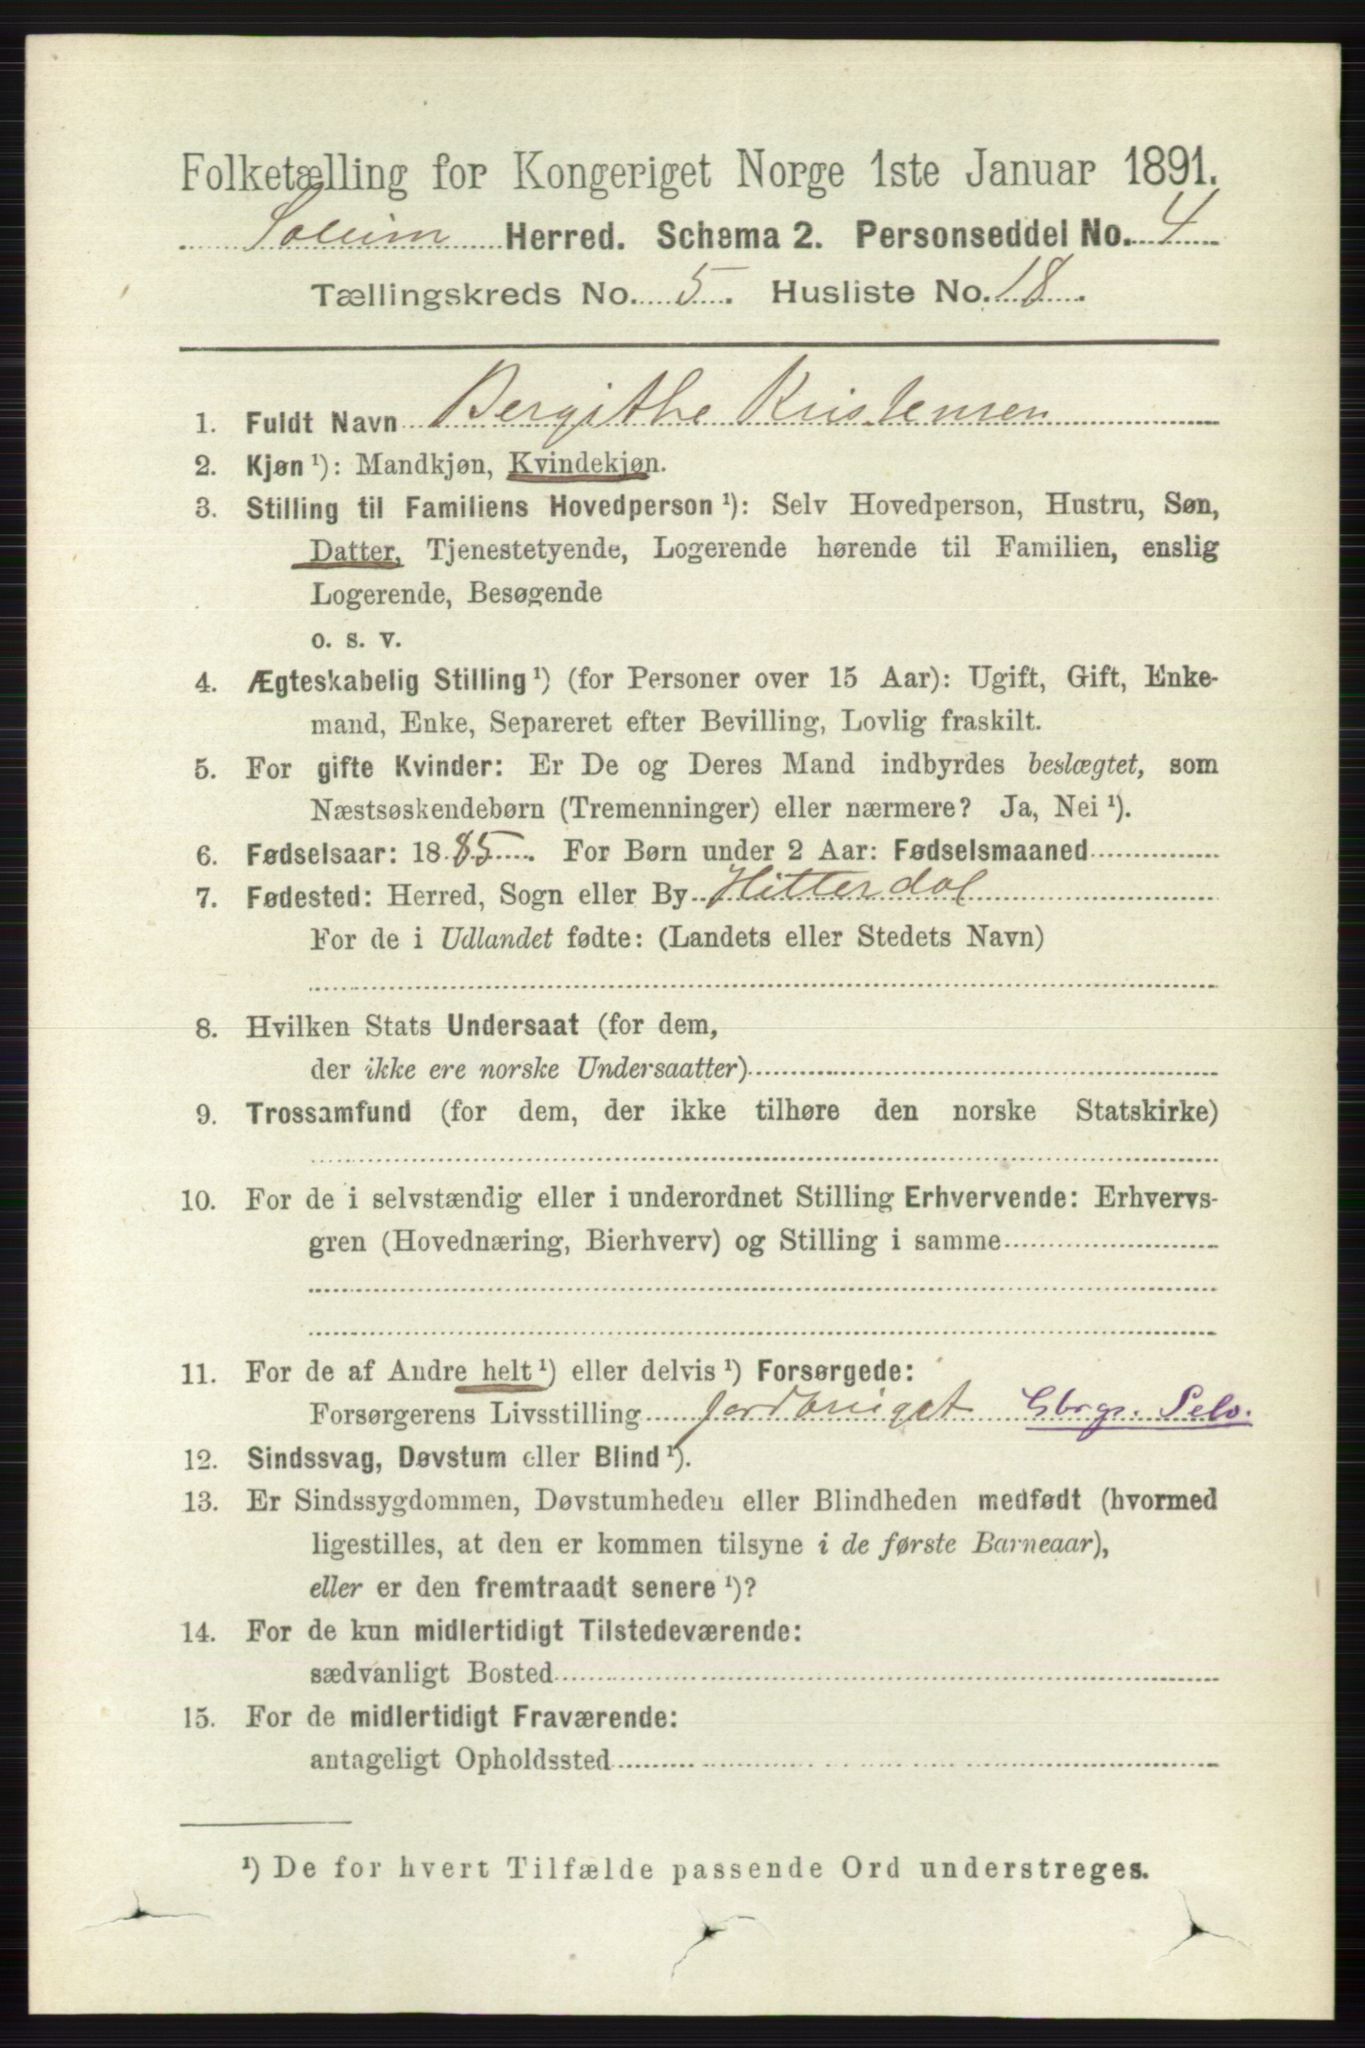 Folketælling for Kongeriget Norge 1ste Januar 1891.
Solum Herred. Schema 2. Personseddel No. 4
Tællingskreds No. 5. Husliste No. 18.
1. Fuldt Navn Bergithe Kristensen
2. Kjøn ¹): Mandkjøn, Kvindekjøn.
3. Stilling til Familiens Hovedperson ¹): Selv Hovedperson, Hustru, Søn,
Datter, Tjenestetyende, Logerende hørende til Familien, enslig
Logerende, Besøgende
o. s. v.
4. Ægteskabelig Stilling ¹) (for Personer over 15 Aar): Ugift, Gift, Enke-
mand, Enke, Separeret efter Bevilling, Lovlig fraskilt.
5. For gifte Kvinder: Er De og Deres Mand indbyrdes beslægtet, som
Næstsøskendebørn (Tremenninger) eller nærmere? Ja, Nei ¹).
6. Fødselsaar: 1885. For Børn under 2 Aar: Fødselsmaaned
7. Fødested: Herred, Sogn eller By Hitterdal
For de i Udlandet fødte: (Landets eller Stedets Navn)
8. Hvilken Stats Undersaat (for dem,
der ikke ere norske Undersaatter)
9. Trossamfund (for dem, der ikke tilhøre den norske Statskirke)
10. For de i selvstændig eller i underordnet Stilling Erhvervende: Erhvervs-
gren (Hovednæring, Bierhverv) og Stilling i samme
11. For de af Andre helt ¹) eller delvis ¹) Forsørgede:
Forsørgerens Livsstilling Jordbruget Gbrgr. Selv.
12. Sindssvag, Døvstum eller Blind ¹).
13. Er Sindssygdommen, Døvstumheden eller Blindheden medfødt (hvormed
ligestilles, at den er kommen tilsyne i de første Barneaar),
eller er den fremtraadt senere ¹)?
14. For de kun midlertidigt Tilstedeværende:
sædvanligt Bosted
15. For de midlertidigt Fraværende:
antageligt Opholdssted
¹) De for hvert Tilfælde passende Ord understreges.